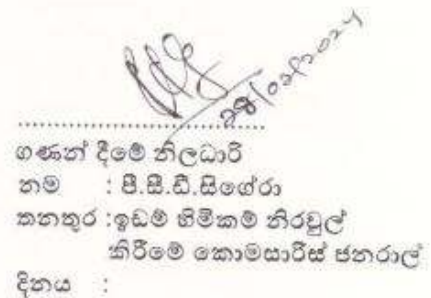 28/02/2024
..............................
ගණන් දීමේ නිලධාරී
නම : පී.සී.ඩී.සිගේරා
තනතුර : ඉඩම් හිමිකම් නිරවුල්
කිරීමේ කොමසාරිස් ජනරාල්
දිනය :